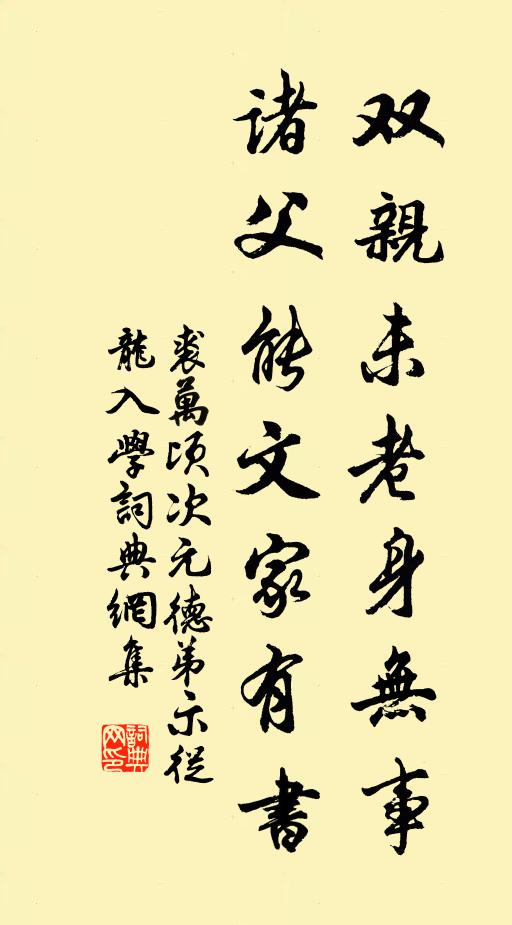 双親未老身無事
諸父能文家有書
裘萬頃次元德弟示從
龍入學詞典網集
詞典网印